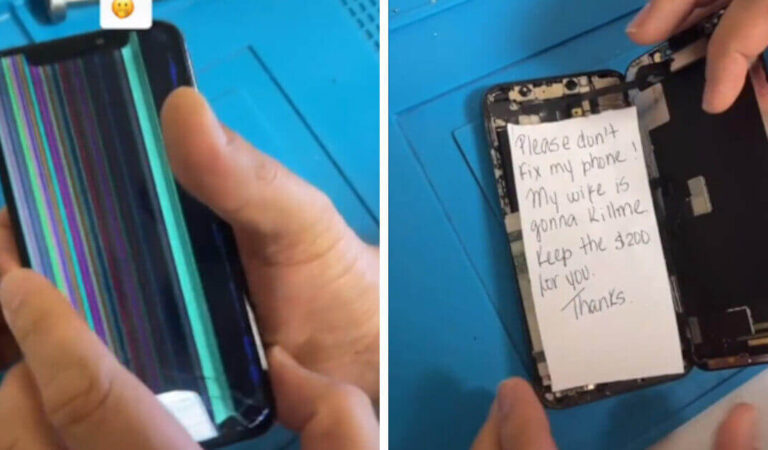 Please don't
Fix my phone!
My wife is
gonna Killme
Keep the $200
for you.
Thanks.